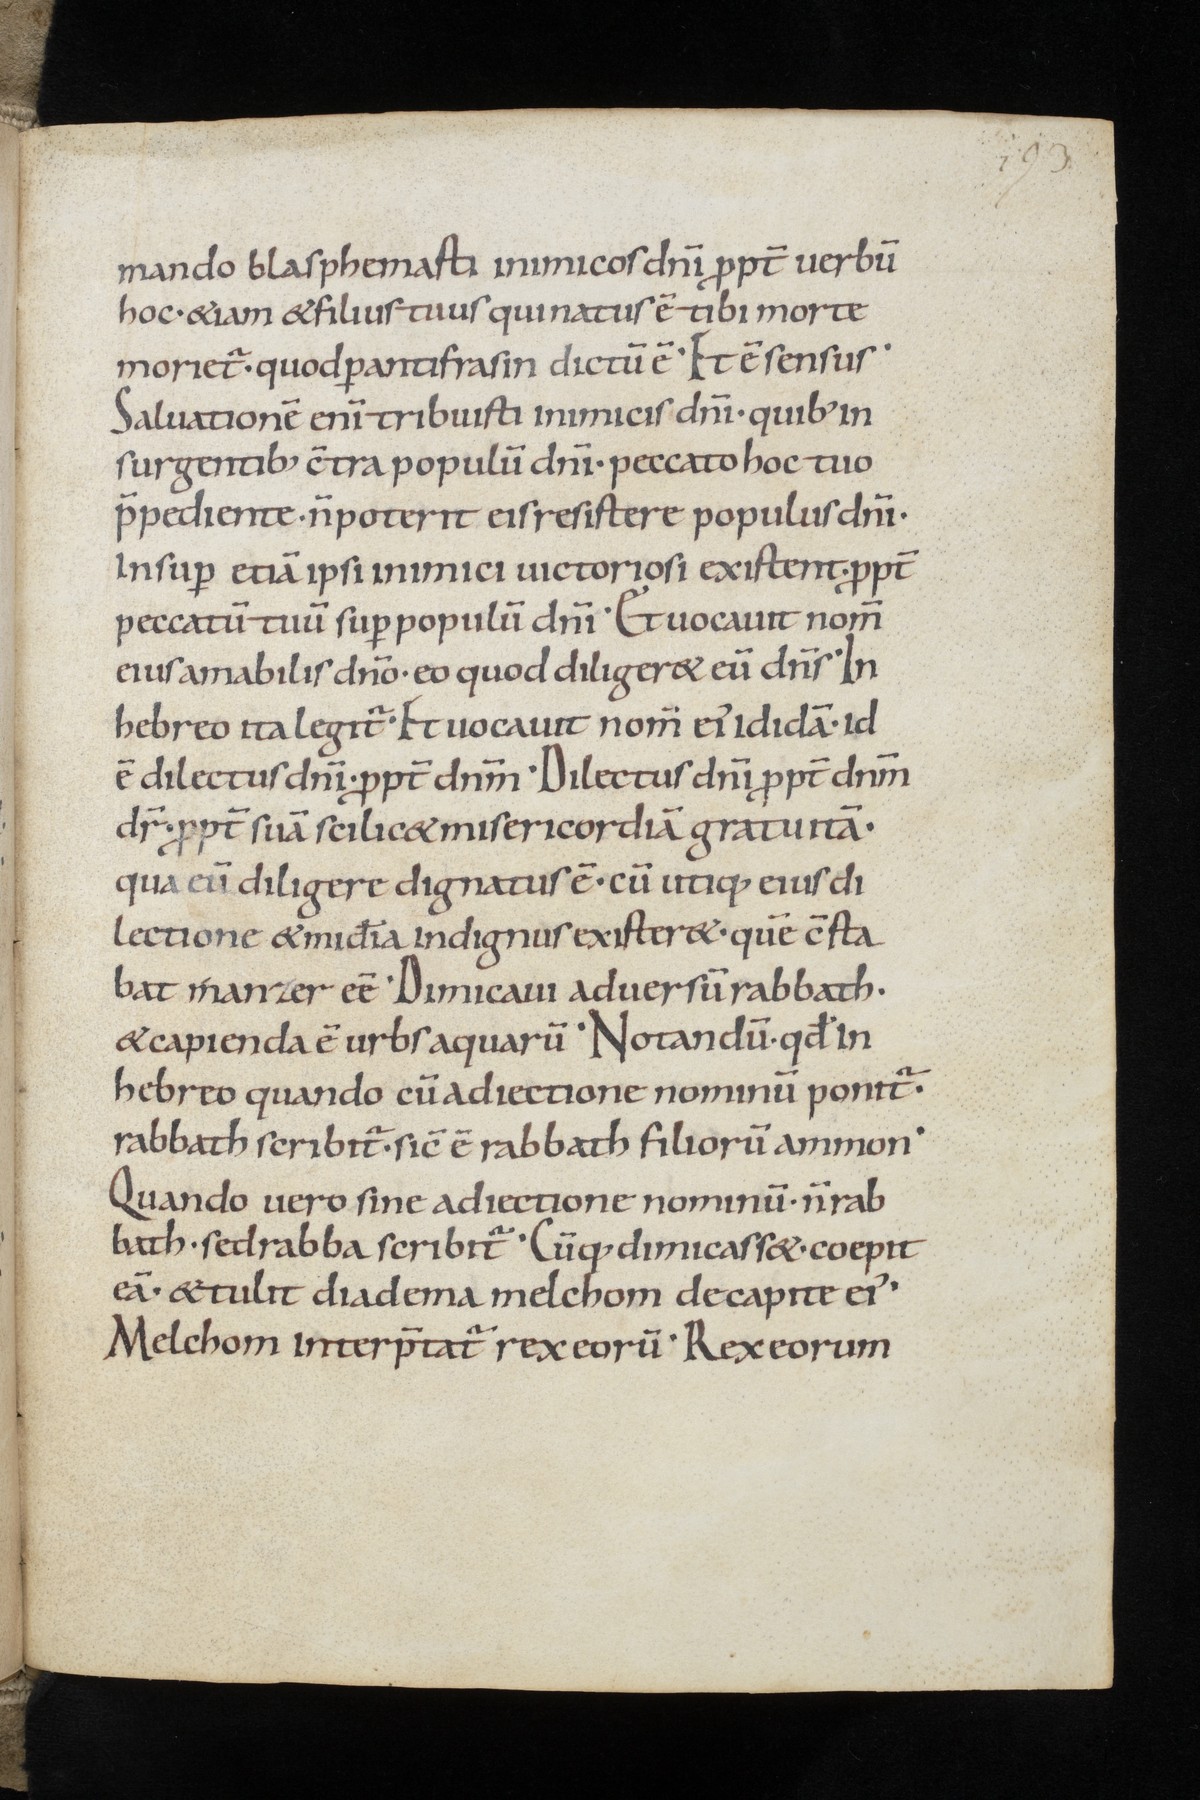 193
mando blasphemasti inimicos dnī ꝓpt̄ uerbū
hoc · &iam & filius tuus qui natus ē tibi morte
moriet᷑ · quod ꝑ antifrasin dictū ē · Et ē sensus ·
Saluationē enī tribuisti inimicis dnī · quib; in
surgentib; c̄tra populū dnī · peccato hoc tuo
p̄pediente · n̄ poterit eis resistere populus dnī ·
Insuꝑ etiā ipsi inimici uictoriosi existent · ꝓpt̄
peccatū tuū suꝑ populū dnī · Et uocauit nom̄
eius amabilis dnō · eo quod diliger& eū dn̄s · In
hebreo ita legit᷑ · Et uocauit nom̄ ei᾿ ididā · id
ē dilectus dnī · ꝓpt̄ dnm̄ · Dilectus dnī ꝓpt̄ dnm̄
dr̄ · ꝓpt̄ suā scilic& misericordiā gratuitā ·
qua eū diligere dignatus ē · cū utiq; eius di
lectione & mid̄ia indignus exister& · quē c̄sta
bat manzer eē · Dimicaui aduersū rabbath ·
& capienda ē urbs aquarū · Notandū · qđ in
hebreo quando cū adiectione nominū ponit᷑ ·
rabbath scribit᷑ · sic̄ ē rabbath filiorū ammon ·
Quando uero sine adiectione nominū · n̄ rab
bath · sed rabba scribit᷑ · Cūq; dimicass& · coepit
eā · & tulit diadema melchom de capite ei᾿ ·
Melchom interp̄tat᷑ rex eorū · Rex eorum